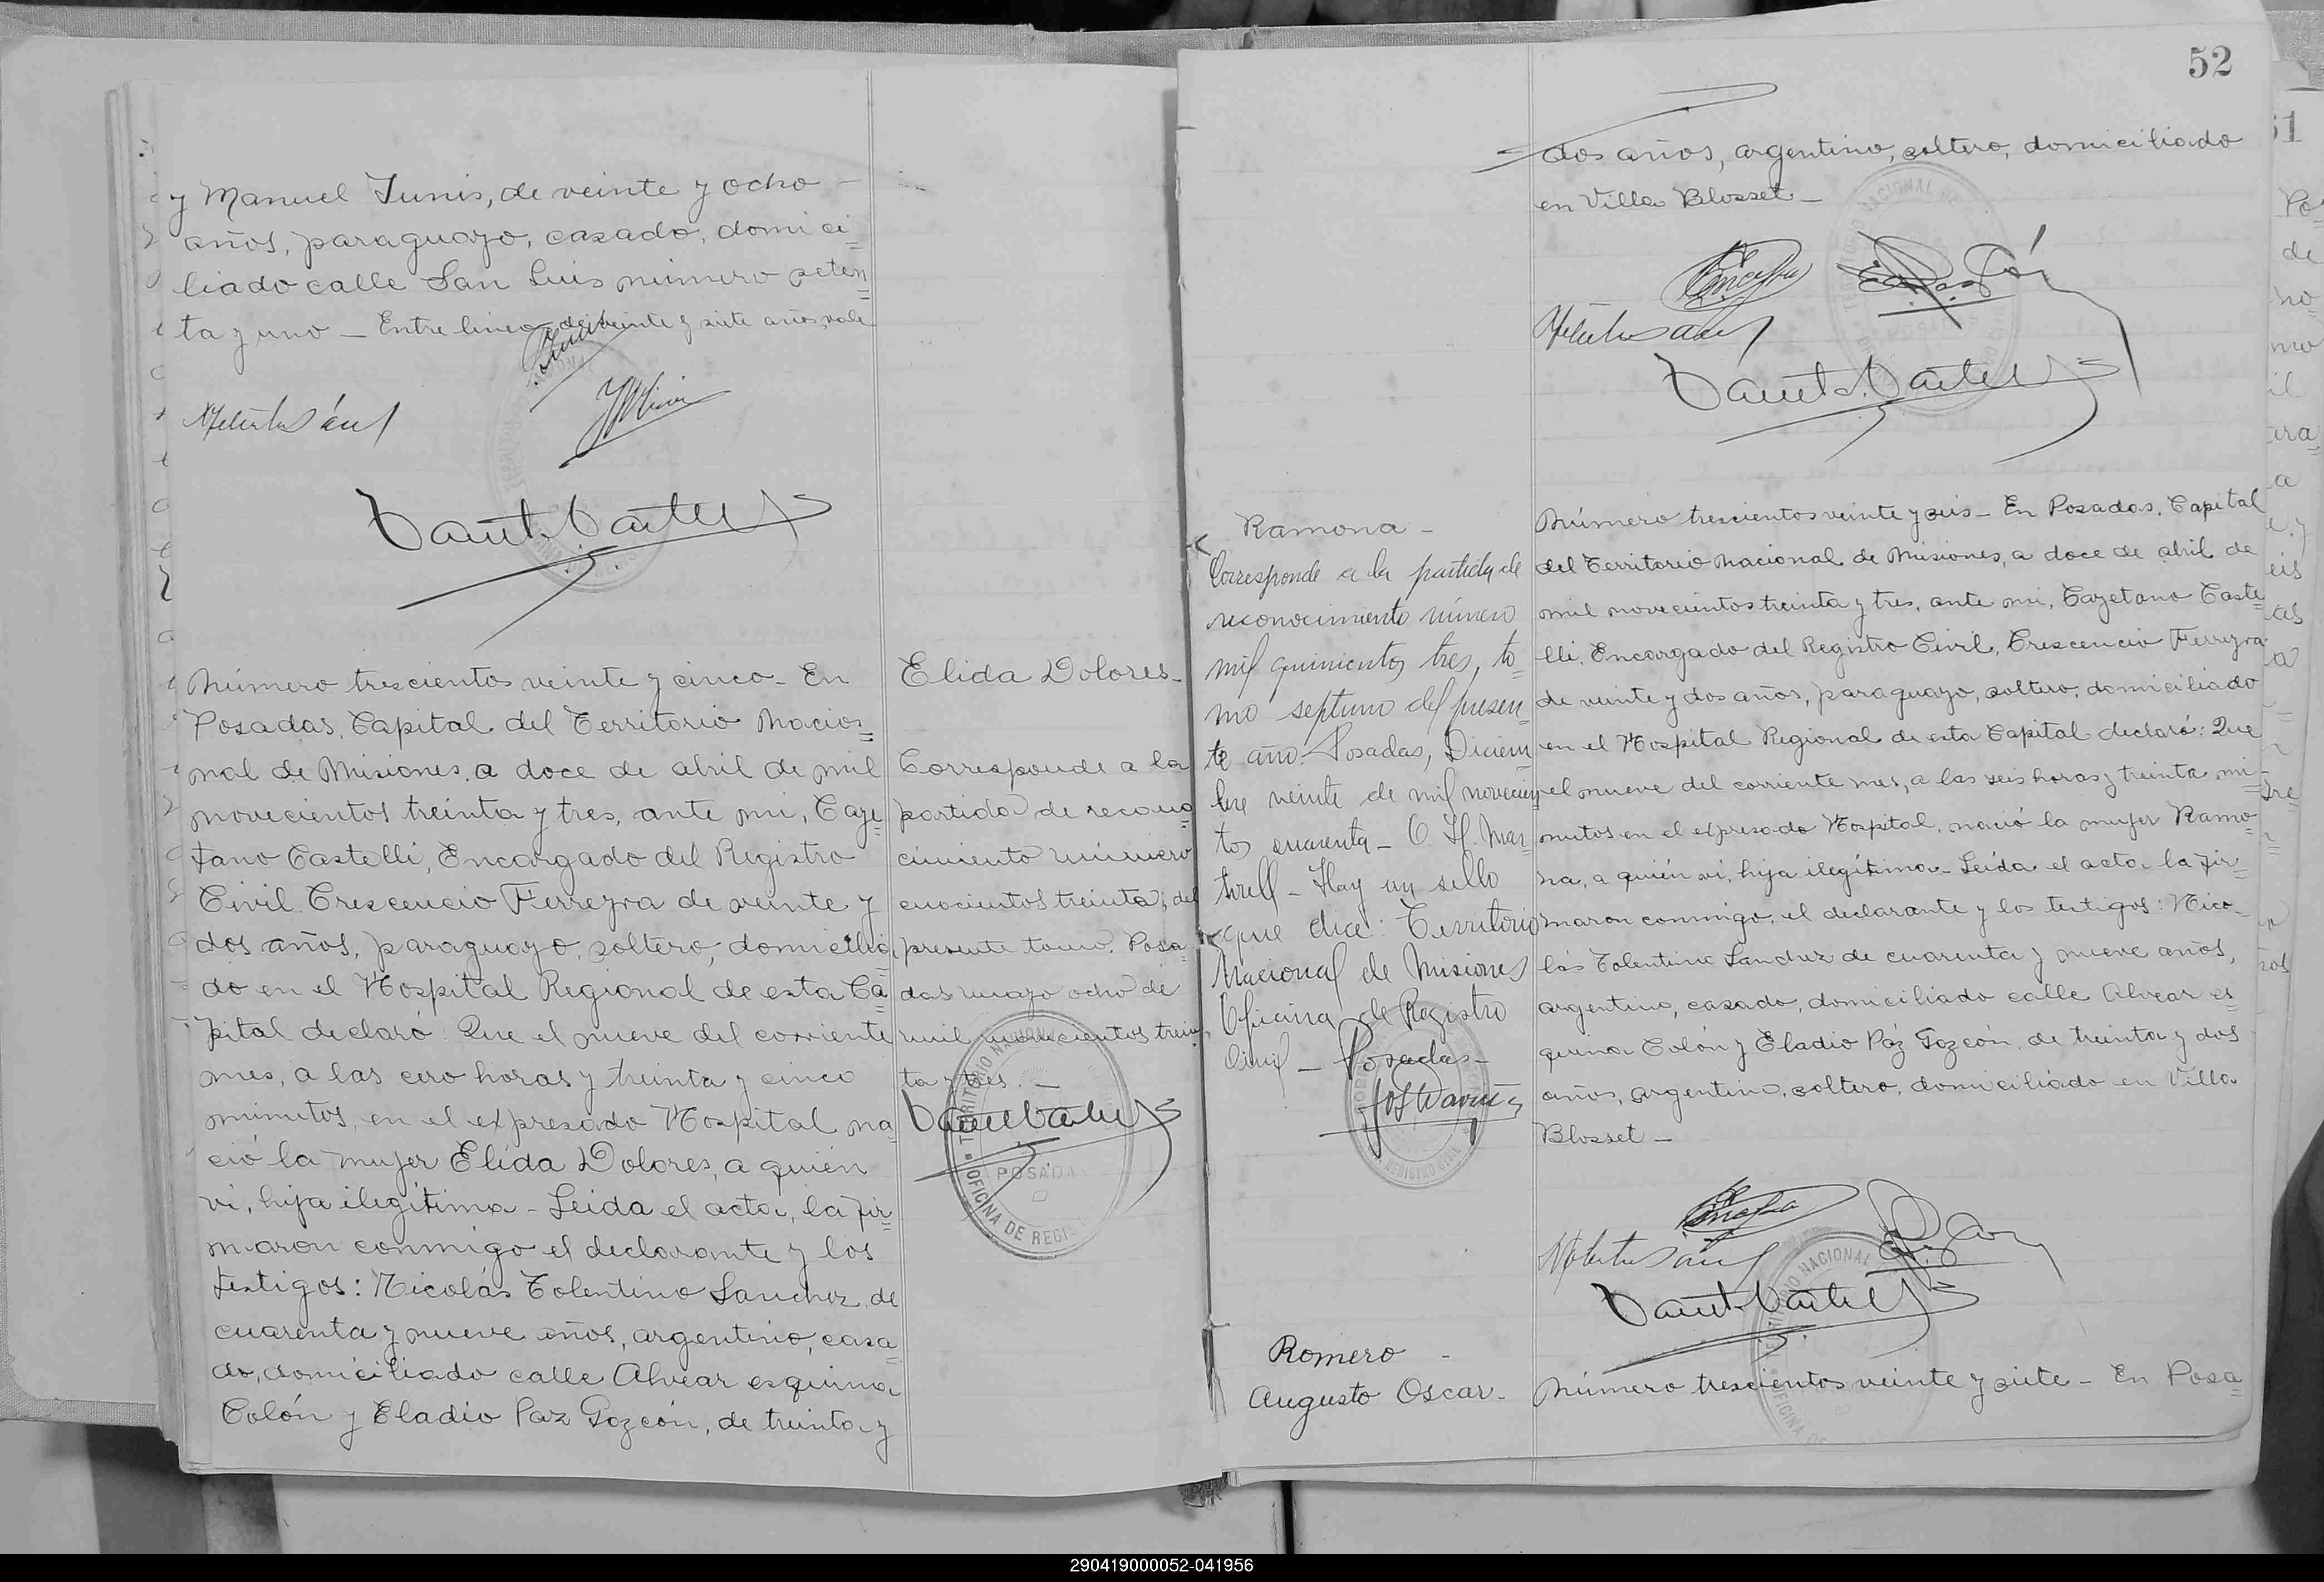 y Manuel Tunis, de veinte y ocho -
años, paraguayo, casado, domici=
liado calle San Luis número seten=
ta y uno - Entre linea de veinte y siete años, vale
Número trescientos veinte y cinco - En
Posadas, Capital del Territorio Nacio=
nal de Misiones, a doce de abril de mil
novecientos treinta y tres, ante mi, Caye=
tano Castelli, Encargado del Registro
Civil Crescencio Ferreyra de veinte y
dos años, paraguayo, soltero, domicilia=
do en el Hospital Regional de esta Ca=
pital declaró: Que el nueve del corriente
mes, a las cero horas y treinta y cinco
minutos, en el expresado Hospital na=
ció la mujer Elida Dolores, a quién
vi, hija ilegítima - Leida el acta, la fir=
maron conmigo el declarante y los
testigos: Nicolás Tolentino Sanchez, de
cuarenta y nueve años, argentino, casa=
do, domiciliado calle Alvear esquina
Colón y Eladio Paz Gozeón, de treinta y
Elida Dolores -
Corresponde a la
partida de recono=
cimiento número
cuocientos treinta, del
presente tomo. Posa=
das mayo ocho de
mil novecientos trein=
ta y tres. -
TERRITORIO NACIONAL
POSADA
OFICINA DE REGIST
52
dos años, argentino, soltero, domiciliado
en Villa Blosset -
Ramona -
Corresponde a la partida de
reconocimiento número
mil quinientos tres, to=
mo septimo del presen=
te año. Posadas, Diciem
bre veinte de mil novecien
tos cuarenta - C. H. Mar=
torell - Hay un sello
que dice: Territorio
Nacional de Misiones
Oficina de Registro
Civil - Posadas -
Número trescientos veinte y seis - En Posadas, Capital
del Territorio Nacional de Misiones, a doce de abril de
mil novecientos treinta y tres, ante mi, Cayetano Caste=
lli, Encargado del Registro Civil, Crescencio Ferreyra
de veinte y dos años, paraguayo, soltero, domiciliado
en el Hospital Regional de esta Capital declaró: Que
el nueve del corriente mes, a las seis horas y treinta mi=
nutos en el expresado Hospital, nació la mujer Ramo=
na, a quién vi, hija ilegítima - Leída el acta la fir=
maron conmigo, el declarante y los testigos: Nico=
lás Tolentino Sanchez de cuarenta y nueve años,
argentino, casado, domiciliado calle Alvear es=
quina Colón y Eladio Páz Gozeón, de treinta y dos
años, argentino, soltero, domiciliado en Villa
Blosset -
Romero -
Augusto Oscar -
Número trescientos veinte y siete - En Posa=
290419000052-041956